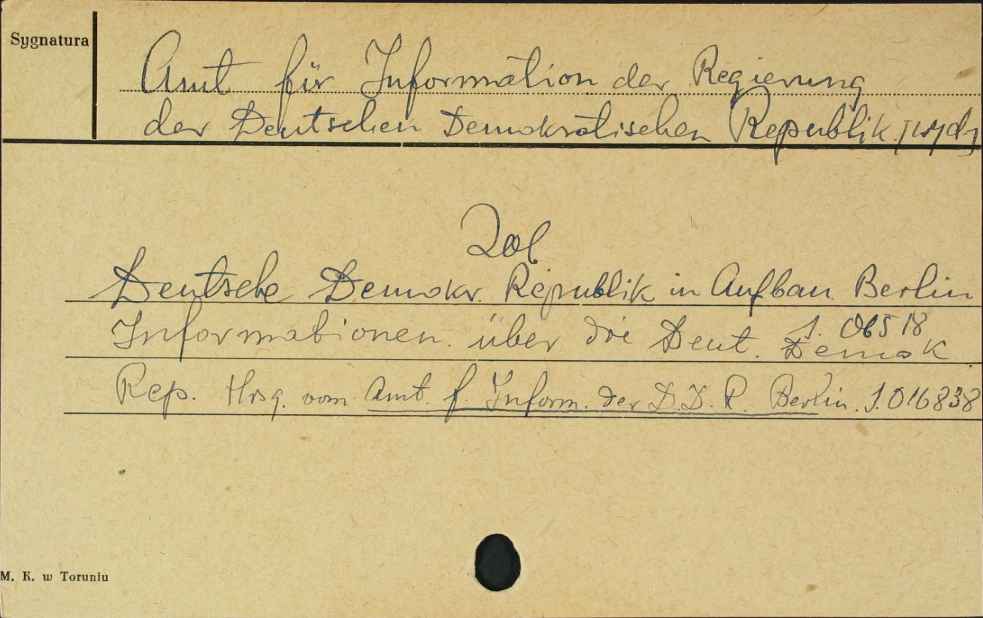 Sygnatura
Amt für Information der Regierung
der Deutschen Demokratischen Republik. [wyd]
Zob
Deutsche Demokr. Republik in Aufbau Berlin
J. 06518
Informationen über die Deut. Demok
Rep. Hrsg. vom Amt. f. Inform. der D.D.R. Berlin. J.016838
M. K. w Toruniu